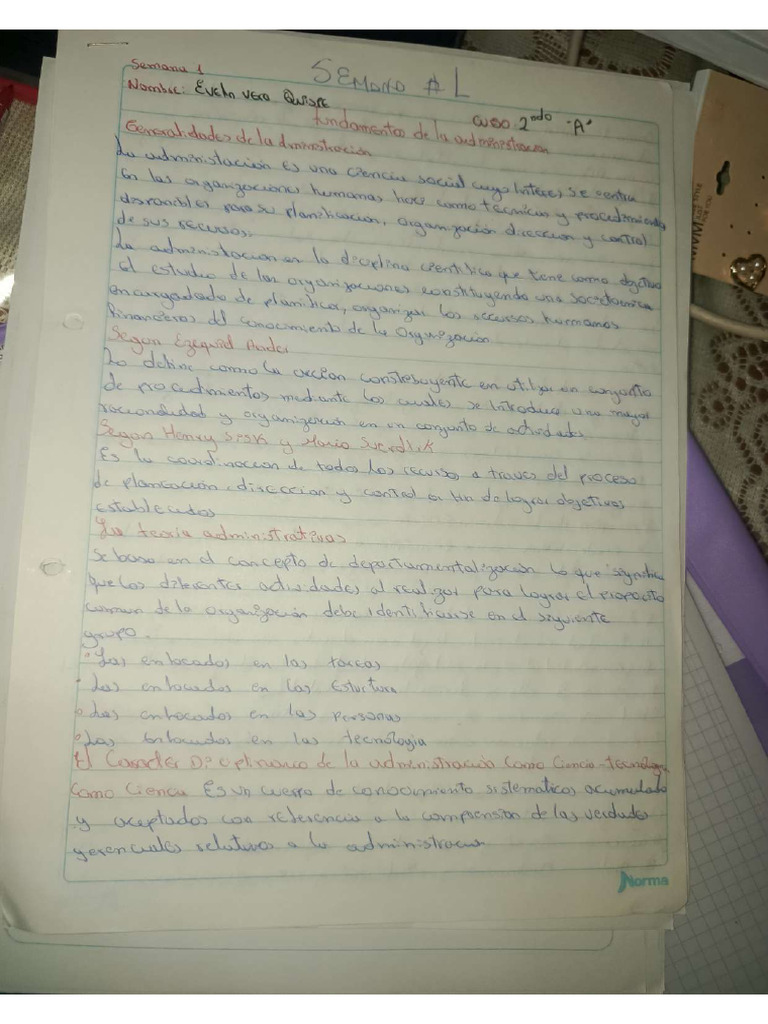 Semana 1
SEMANA # 1
Nombre: Evelin Vera Quispe
curso 2ndo "A"
fundamentos de la administracion
Generalidades de la administración
La administación es una ciencia social cuyo interes se centra
en las organizaciones humanas hace como técnicas y procedimientos
disponibles para su planificación, organización direccion y control
de sus recursos.
La administacion en la diciplina cientifica que tene como objetivo
el estudio de las organizaciones constituyendo una
encargadado de planificar, organizar los recursos humanos
financieros del conocimiento de la organización
Segun Ezequiel Ander
Lo define como la accion constituyente en utilizar un conjunto
de procedimientos mediante los cuales se introduce una mayor
racionalidad y organización en un conjunto de actividades
Segun Henry Sisk y Mario Sverdlik
Es la coordinacion de todos los recursos a traves del proceso
de planeación, direccion y control a fin de lograr objetivos
establecidos
La teoria administrativas
Se basa en el concepto de departamentalización lo que significa
que las diferentes actividades al realizar para lograr el proposito
comun de la organización debe identificarse en el siguiente
grupo.
• Las enfocados en las tareas
• Las enfocados en las Estuctura
• Las enfocados en las personas
• Las enfocados en las tecnologia
El Caracter Diciplinario de la administracion como ciencia - tecnologia
Como Ciencia Es un cuerpo de conocimiento sistematicos, acumulado
y aceptados con referencia a la comprension de las verdades
gerenciales relativos a la administracion
Norma